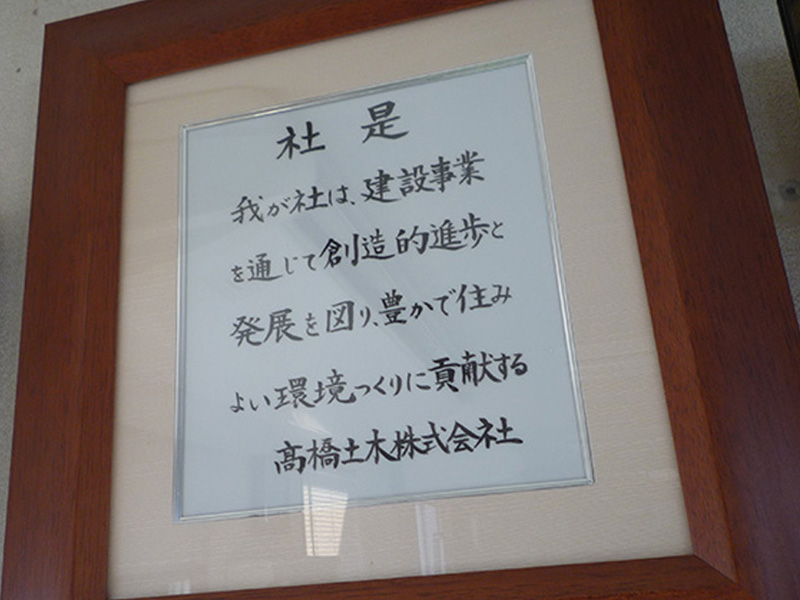 社是
我が社は、建設事業
を通じて創造的進歩と
発展を図り、豊かで住み
よい環境つくりに貢献する
髙橋土木株式会社